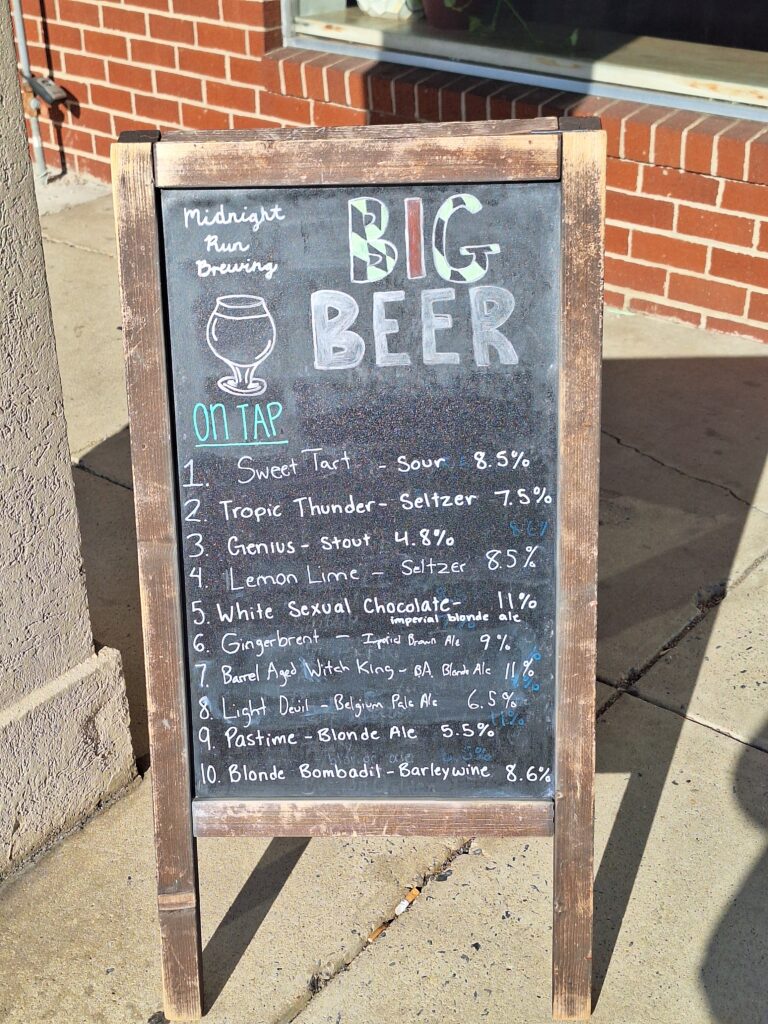 Midnight
Run
Brewing
BIG
BEER
ON TAP
1. Sweet Tart - Sour 8.5%
2. Tropic Thunder - Seltzer 7.5%
3. Genius - Stout 4.8%
4. Lemon Lime - Seltzer 8.5%
5. White Sexual Chocolate - 11%
imperial blonde ale
6. Gingerbrent - Imperial Brown Ale 9%
7. Barrel Aged Witch King - BA Blonde Ale 11%
8. Light Devil - Belgium Pale Ale 6.5%
9. Pastime - Blonde Ale 5.5%
10. Blonde Bombadil - Barleywine 8.6%